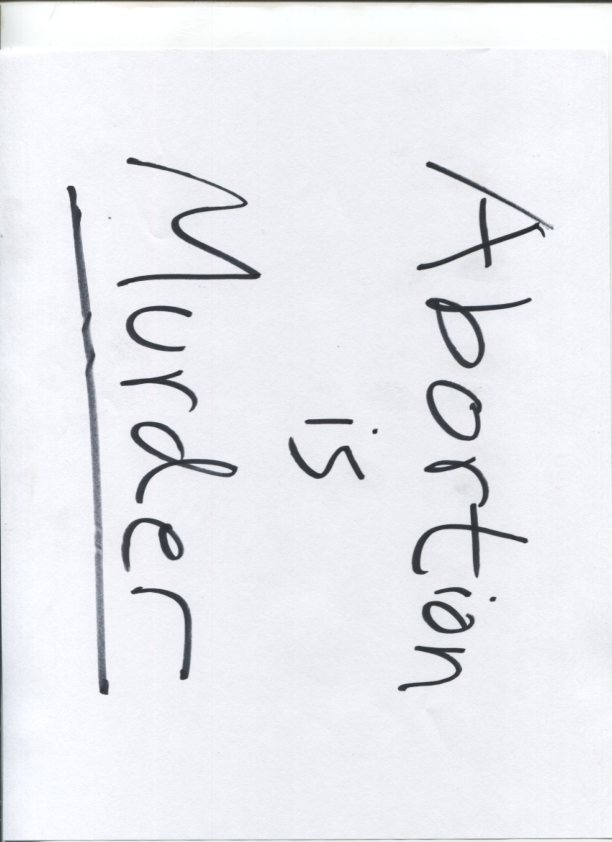 Abortion
is
Murder